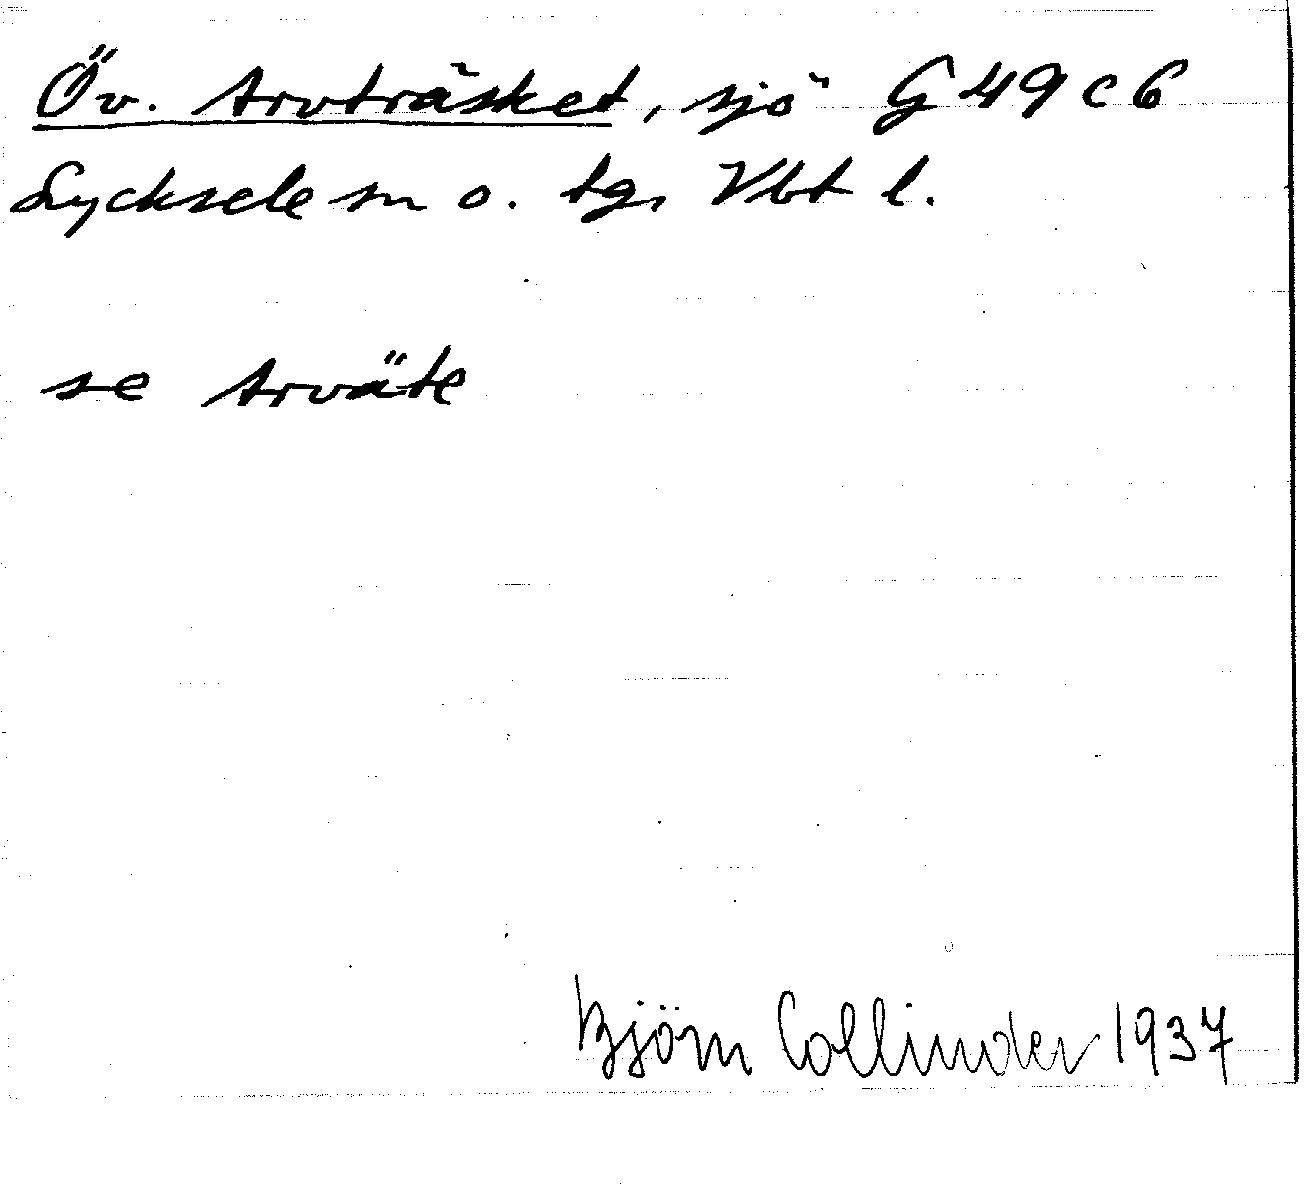 Öv. Arvträsket, sjö G 49 c 6
Lycksele sn o. tg, Vbt l.
se Arväte
Björn Collinder 1937